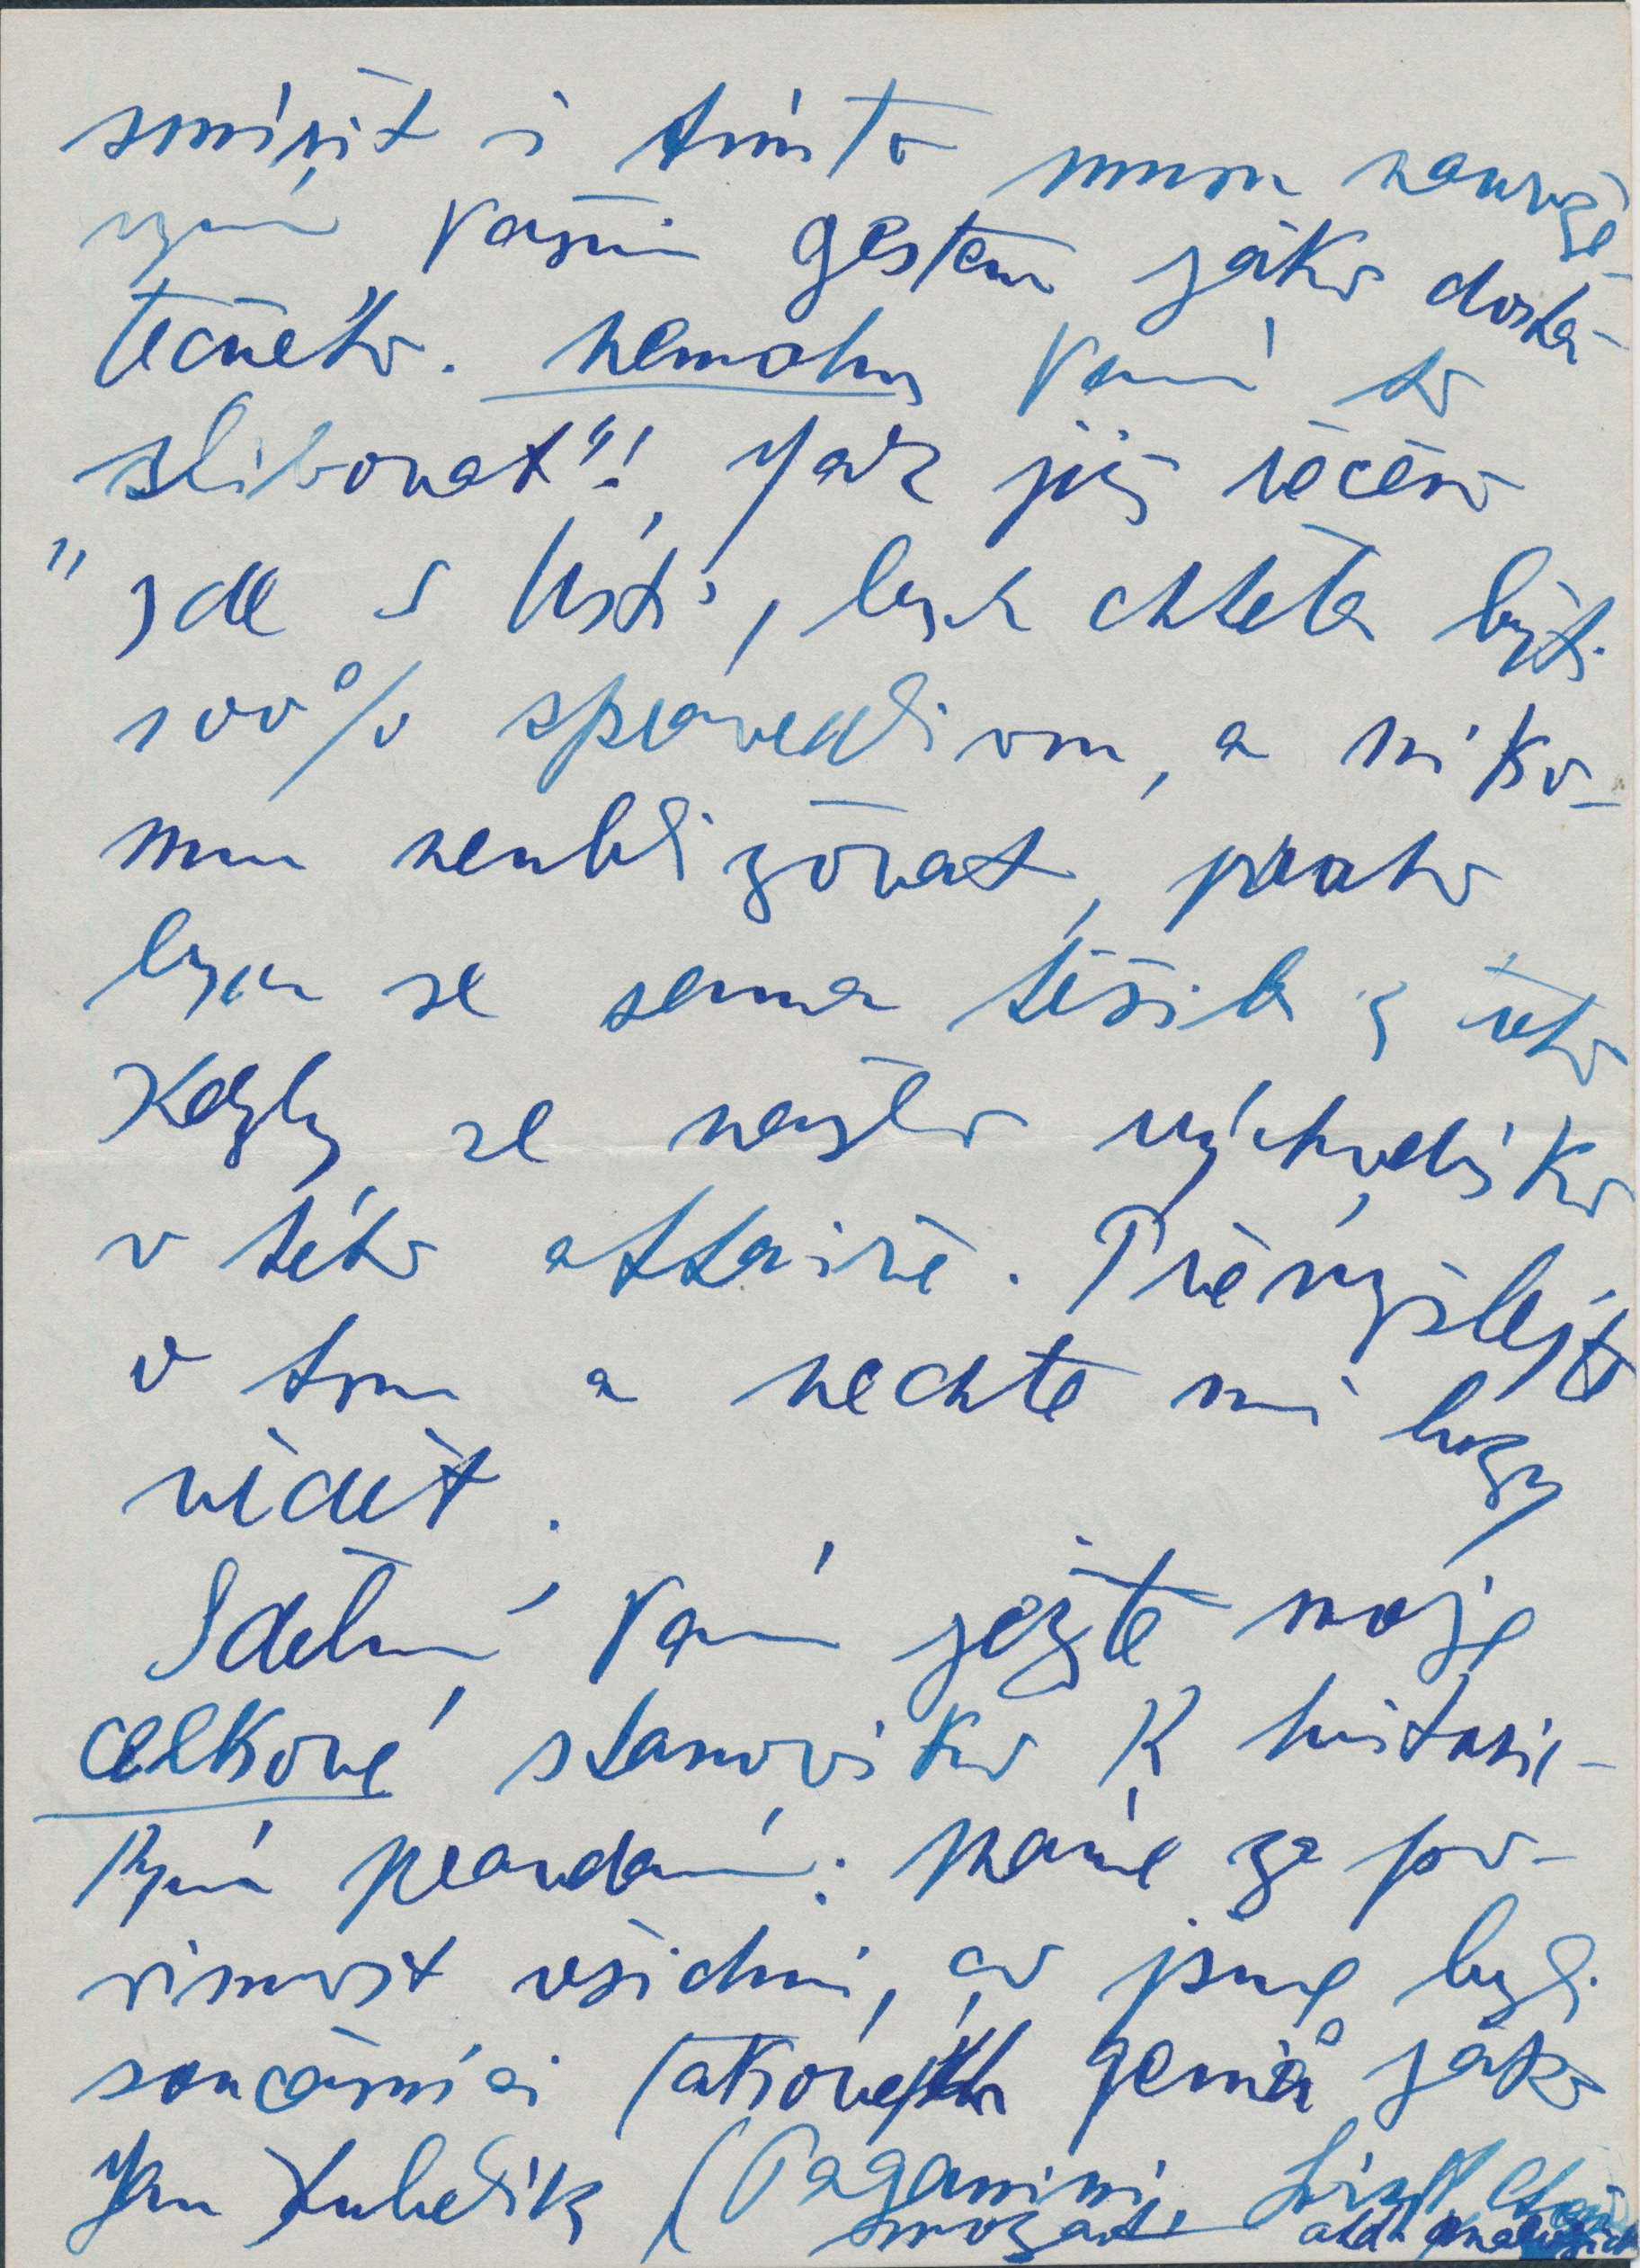 smířit i tímto mmn navrže-
ným Vaším gestem jako dosta-
tečného. Nemohu Vám to
slibovat"! Jak již řečeno
"jde o listí", bych chtěla býti
100% spravedlivou, a niko-
mu neublizovat, proto
bych se sama těšila z toho
Kdyby se našlo východisko
v této affaiře. Přemýšlejte
o tom a nechte mi brzy
vědět.
Sdělím Vám ještě moje
celkové stanovisko k historic-
kým pravdám: Máme za po-
vinnost všichni, co jsme byli
současníci takových geniů jako
Jan Kubelík (Paganini, Liszt
Mozart, atd.